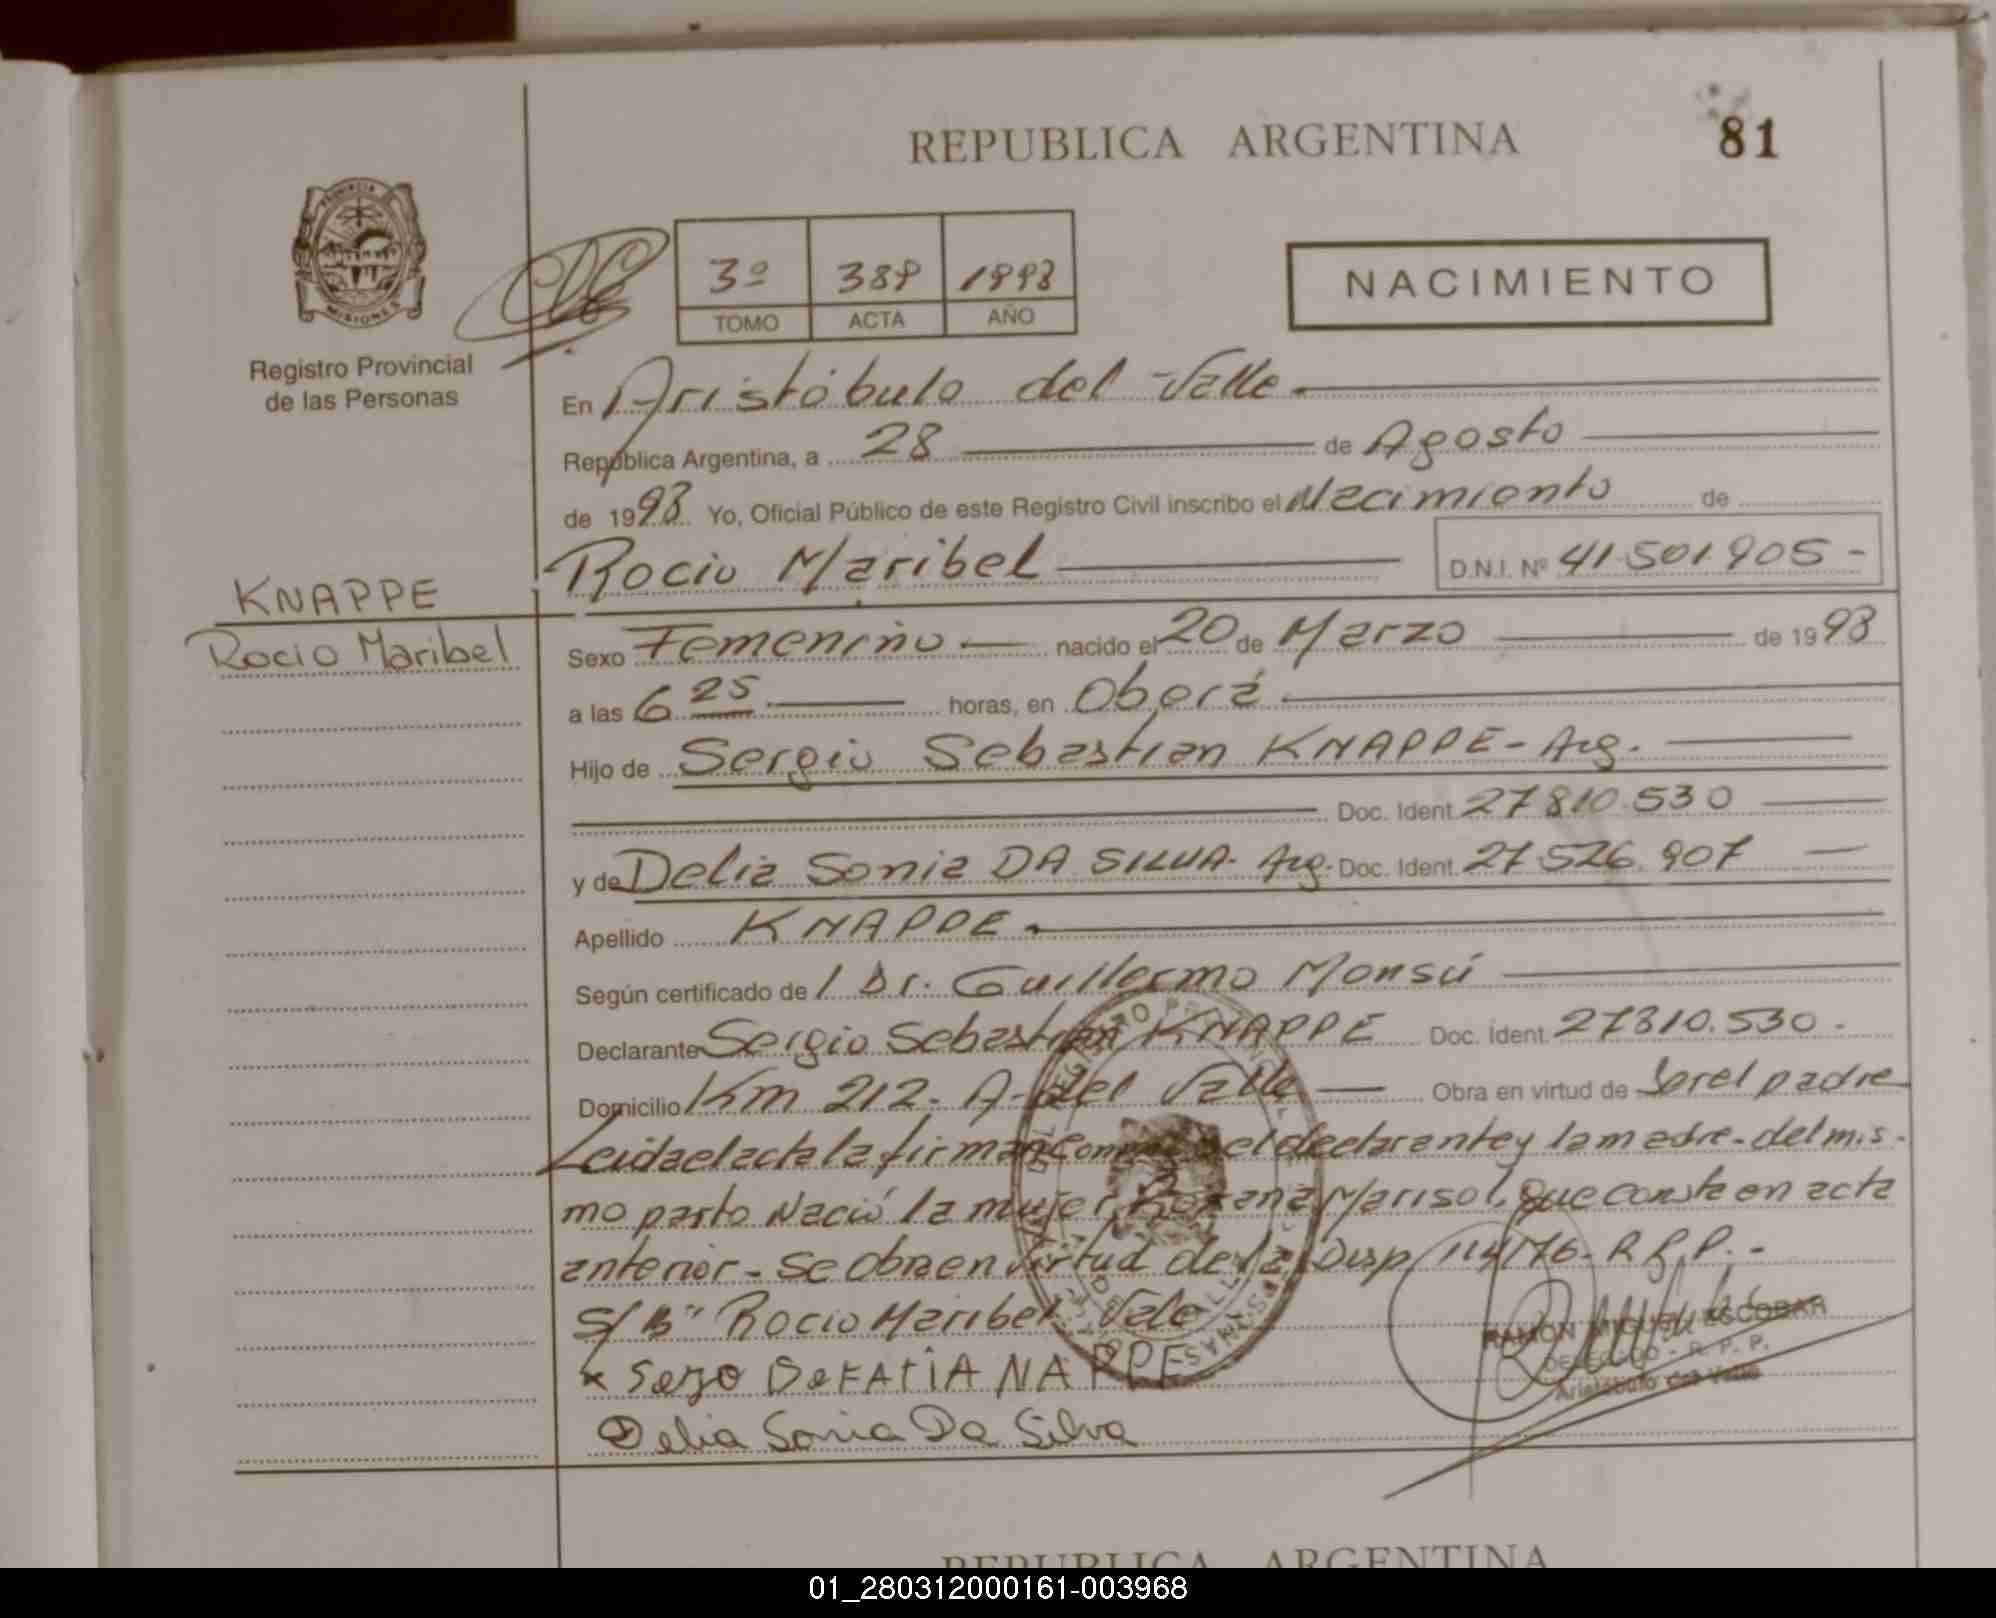 REPUBLICA ARGENTINA
81
PROVINCIA
MISIONES
Registro Provincial
de las Personas
3º 1998
TOMO ACTA AÑO
NACIMIENTO
En Aristóbulo del Valle.
República Argentina, a 28 de Agosto
de 1998 Yo, Oficial Público de este Registro Civil inscribo el Nacimiento de
Rocio Maribel D.N.I. Nº 41.501.905-
KNAPPE
Rocio Maribel
Sexo Femenino nacido el 20 de Marzo de 1998
a las 6 25 horas, en Oberá
Hijo de Sergio Sebastian KNAPPE - Arg.
Doc. Ident. 27.810.530
y de Delia Sonia DA SILVA - Arg. Doc. Ident. 27.526.907
Apellido KNAPPE
Según certificado de l Dr. Guillermo Monsú
Declarante Sergio Sebastian KNAPPE Doc. Ident. 27810.530 -
Domicilio Km 212 - A. del Valle Obra en virtud de Ser el padre
Leida el acta la firman el declarante y la madre - del mis-
mo parto Nació la mujer Marisol, que consta en acta
anterior - Se obra en virtud de la Disp. 114/76 - R.P.P. -
S/B" Rocio Maribel Vale
RAMON MIGUEL ESCOBAR
DELEGADO - R. P. P.
Aristóbulo del Valle
x NAPPE
Delia Sonia Da Silva
REPUBLICA ARGENTINA
01_280312000161-003968